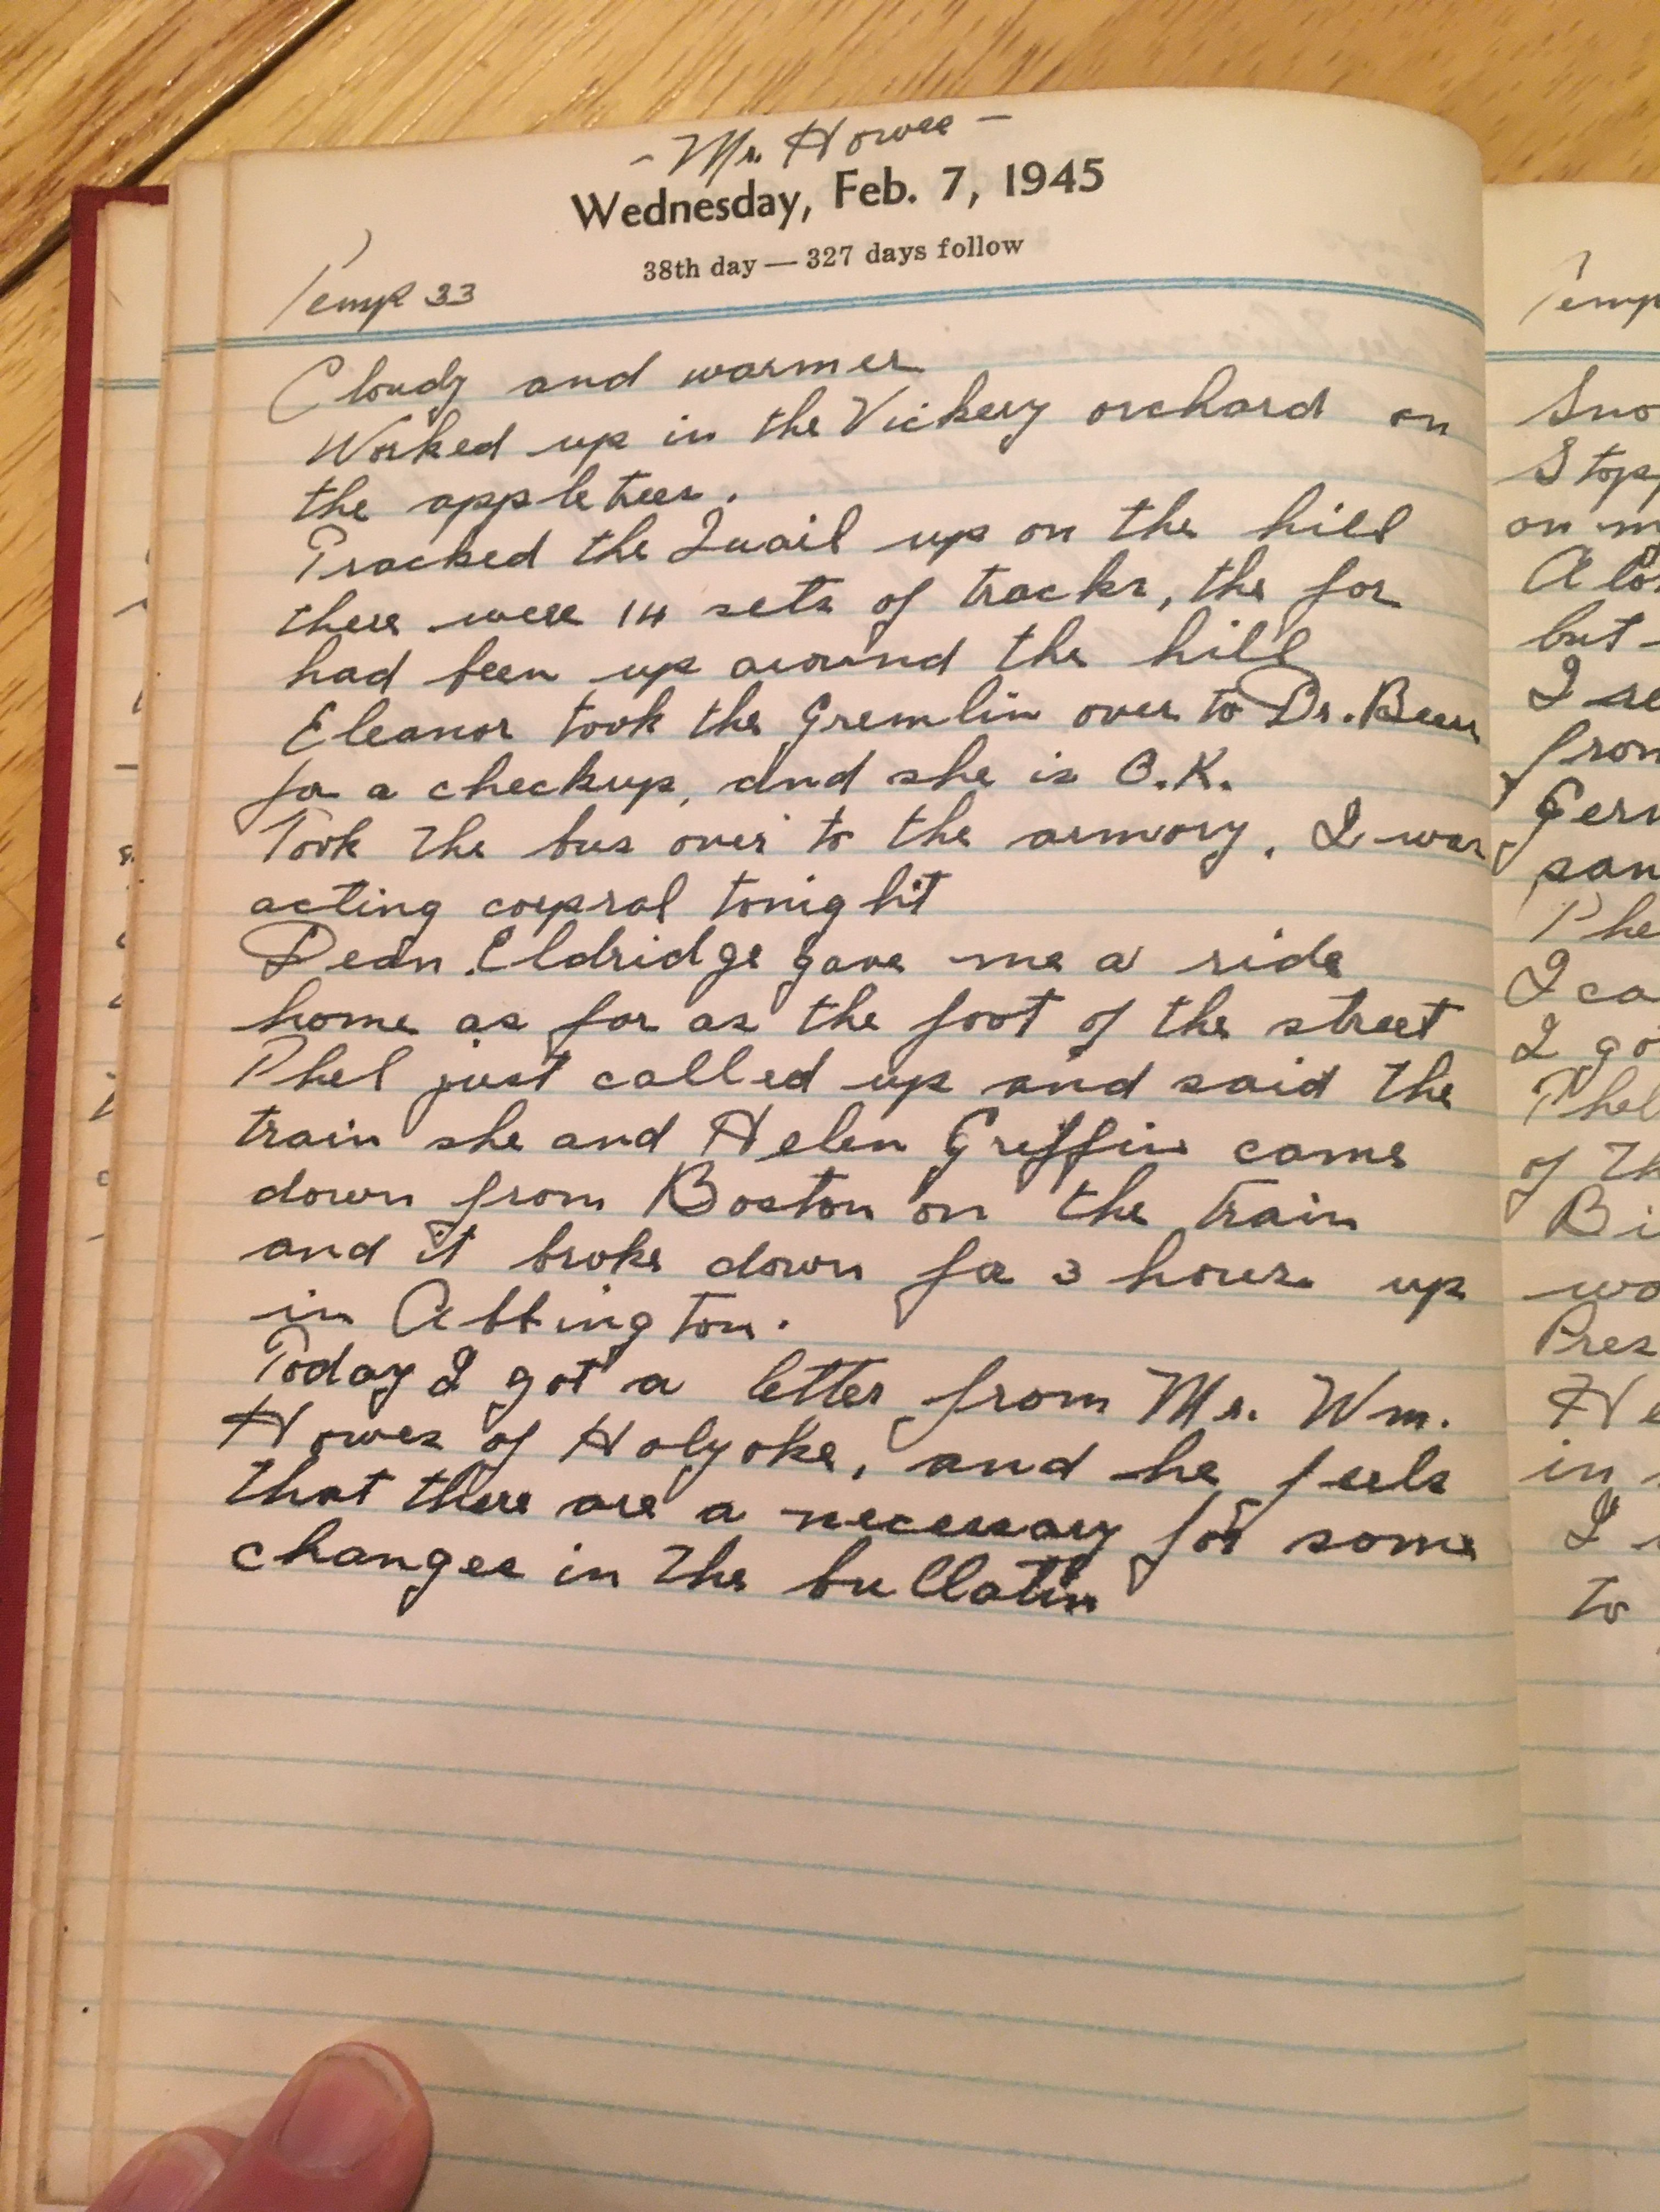 - Mr. Howes -
Wednesday, Feb. 7, 1945
38th day — 327 days follow
Temp 33
Cloudy and warmer
Worked up in the Vickery orchard on
the apple trees.
Tracked the Quail up on the hill
there were 14 sets of tracks, the fox
had been up around the hill
Eleanor took the Gremlin over to Dr. Beers
for a checkup, and she is O.K.
Took the bus over to the armory, I was
acting corpral tonight
Dean Eldridge gave me a ride
home as far as the foot of the street
Phel just called up and said the
train she and Helen Griffin came
down from Boston on the train
and it broke down for 3 hours up
in Abbington.
Today I got a letter from Mr. Wm.
Howes of Holyoke, and he feels
that there are a necessary for some
changes in the bullatin
Temp
Sno
Stop
on m
A lo
but
I se
from
Germ
san
Phe
I ca
I go
Phel
of Th
Bi
wo
Pres
He
in
I
to